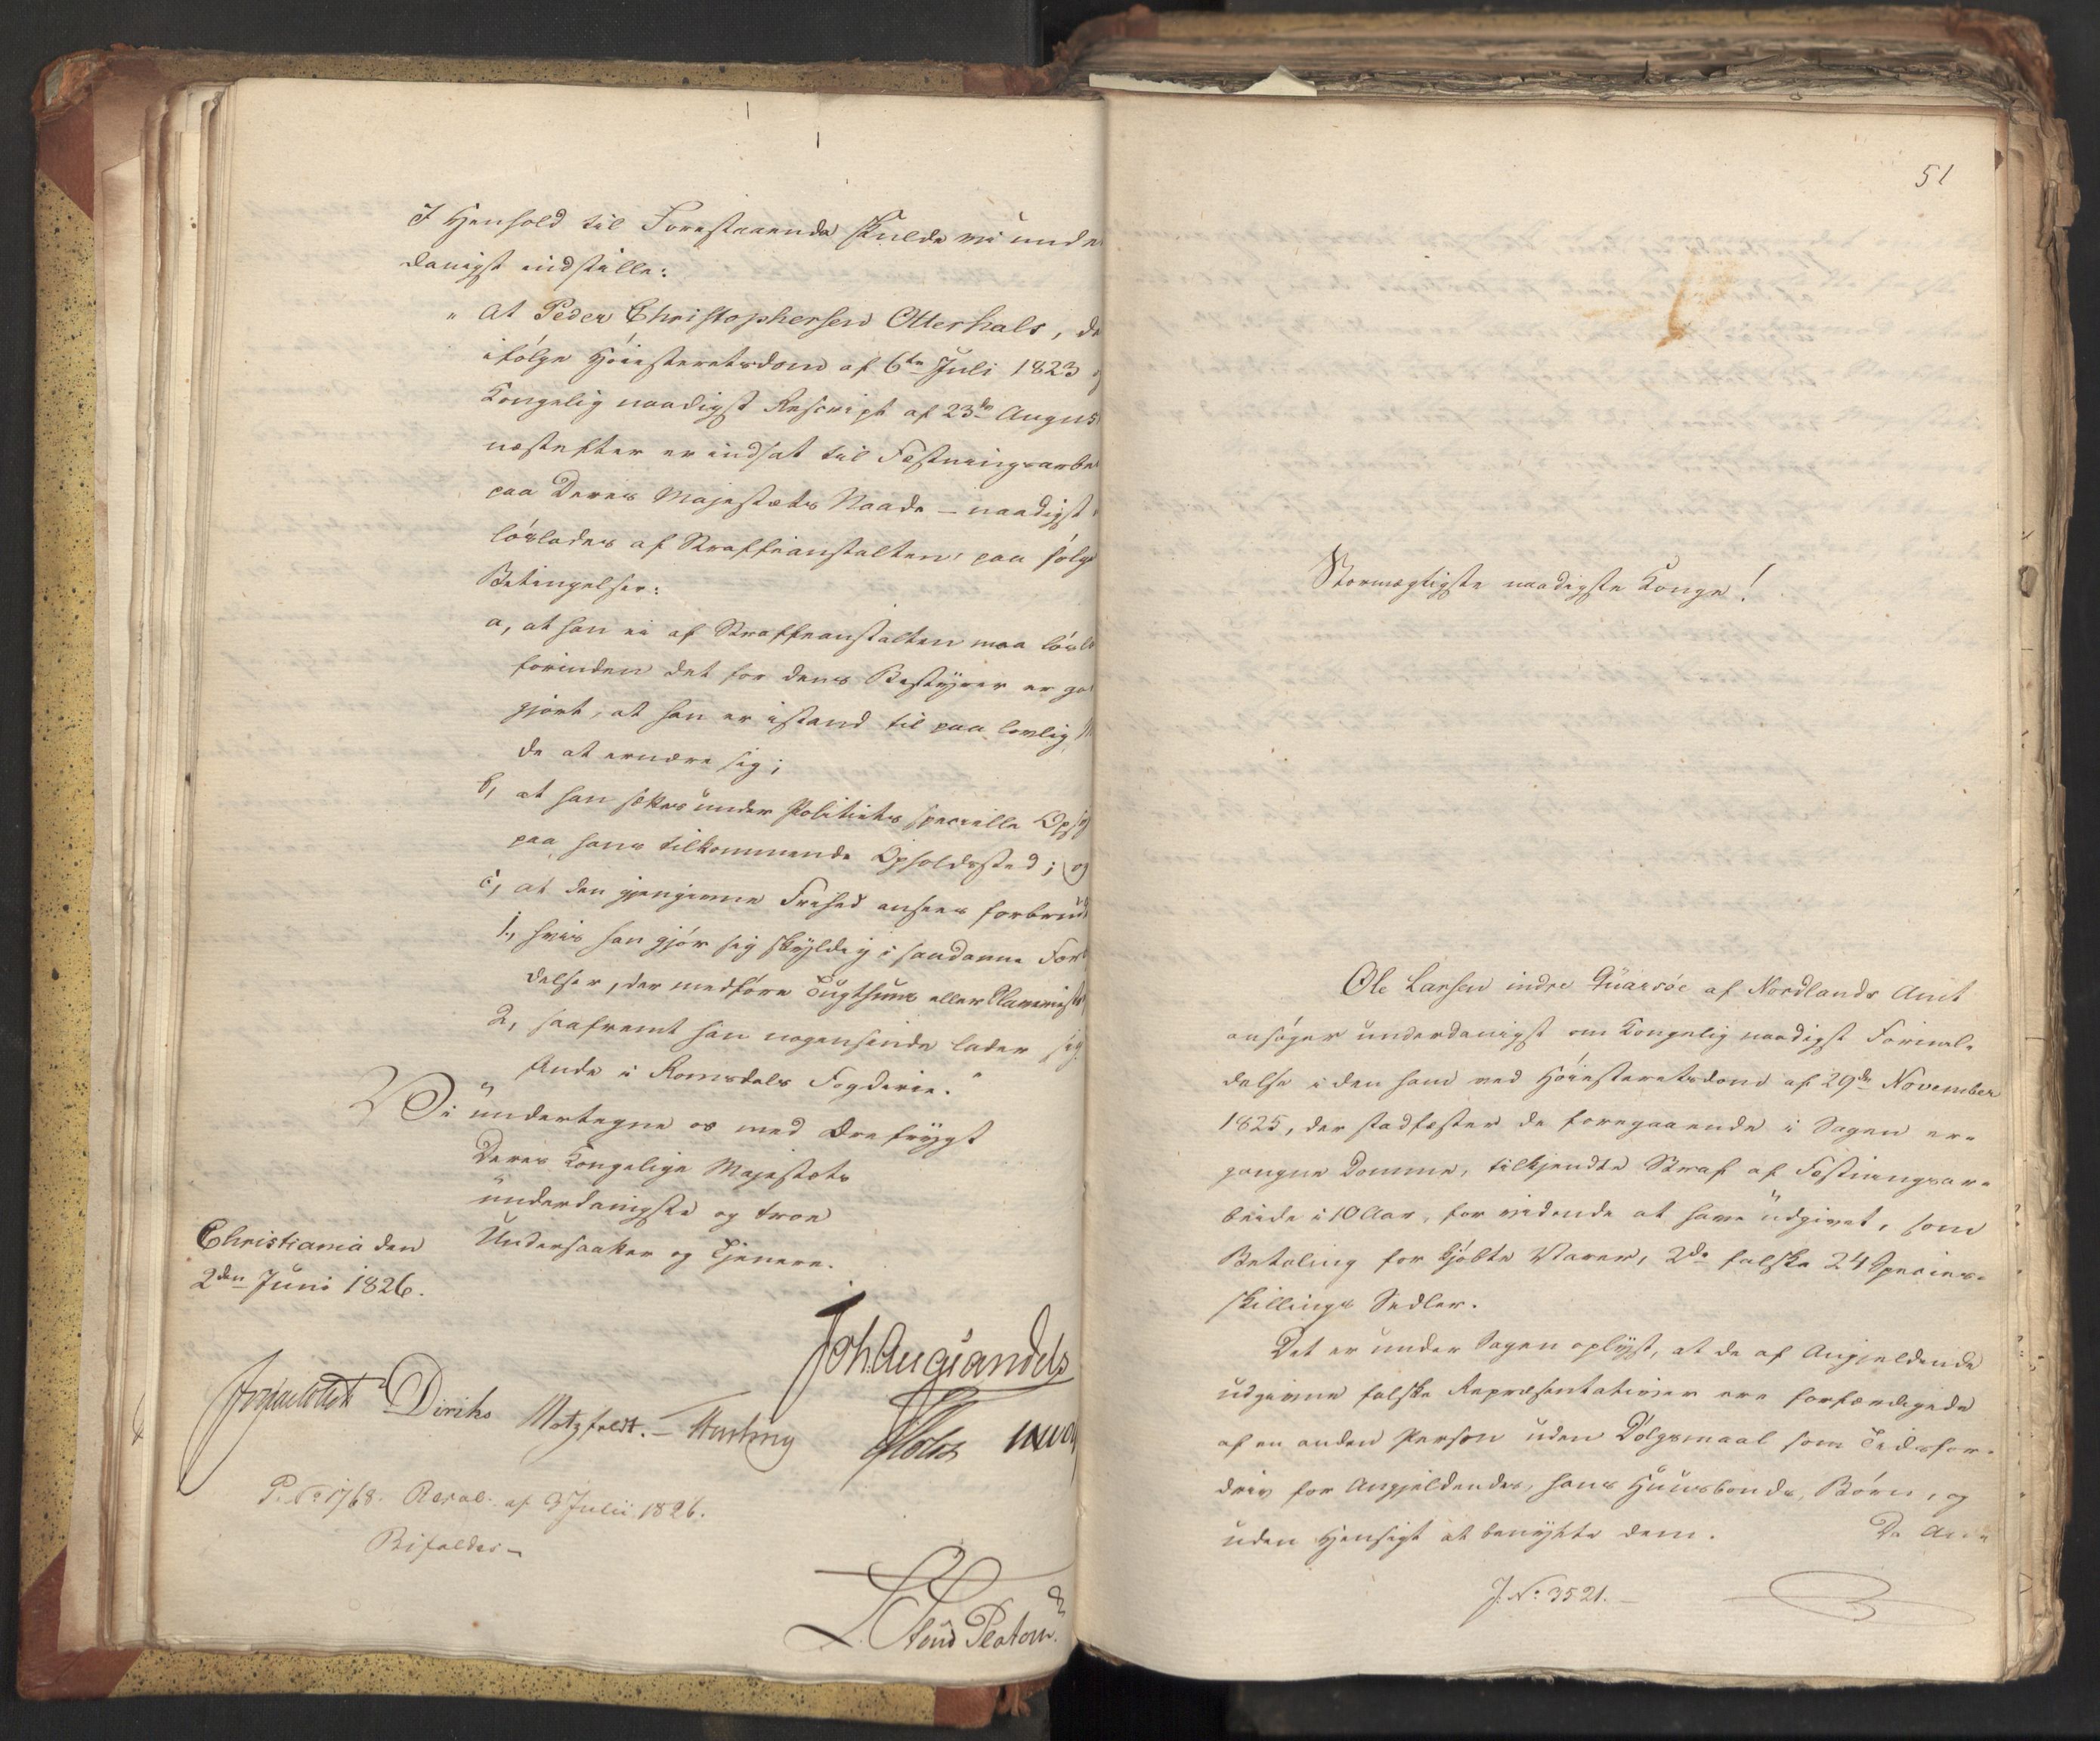 I Henhold til Forestaaende skulde vi under
danigst indstille:
" At Peder Christophersen Otterhals, de
ifølge Høiesteretsdom af 6te Juli 1823 og
Kongelig naadigst Rescript af 23de Augus
næstefter er indsat til Fæstningsarbei
paa Deres Majestæts Naade – naadigst
løslades af Straffeanstalten, paa følge
Betingelser:
a, at han ei af Straffeanstalten maa løsla
forinden det for dens Bestyrer er god
gjort, at han er istand til paa lovlig
de at ernære sig;
b, at han sættes under Politiets specielle Opsy
paa hans tilkommende Opholdssted; og
c, at den gjengivne Frihed ansees forbrudt
1., hvis han gjør sig skyldig i saadanne For
delser, der medføre Tugthuus eller Slaverie
2, saafremt han nogensinde lader sig
finde i Romsdals Fogderie."
Vi undertegne os med Ærefrygt
Deres Kongelige Majestæts
underdanigste og troe
Undersaatter og Tjenere.
Christiania den
2den Juni 1826.
Joh. Aug. Sandels
Diriks Motzfeldt. – Hasting
P. No 1768. Resol. af 3 Julii 1826.
Bifaldes
51
Stormægtigste naadigste Konge!
Ole Larsen indre Quarøe af Nordlands Amt
ansøger underdanigst om Kongelig naadigst Formil-
delse i den ham ved Høiesteretsdom af 29de November
1825, der stadfæster de foregaaende i Sagen er-
gangne Domme, tilkjendte Straf af Fæstningsar-
beide i 10 Aar, for vidende at have udgivet, som
Betaling for kjøbte Varer, 2de falske 24 Species-
skillings Sedler.
Det er under Sagen oplyst, at de af Angjeldende
udgivne falske Repræsentativer ere forfærdigede
af en anden Person uden Dølgsmaal som Tidsfor-
driv for Angjeldendes, hans Huusbonds, Børn, og
uden Hensigt at benytte dem.
Da An-
J. No: 3521.